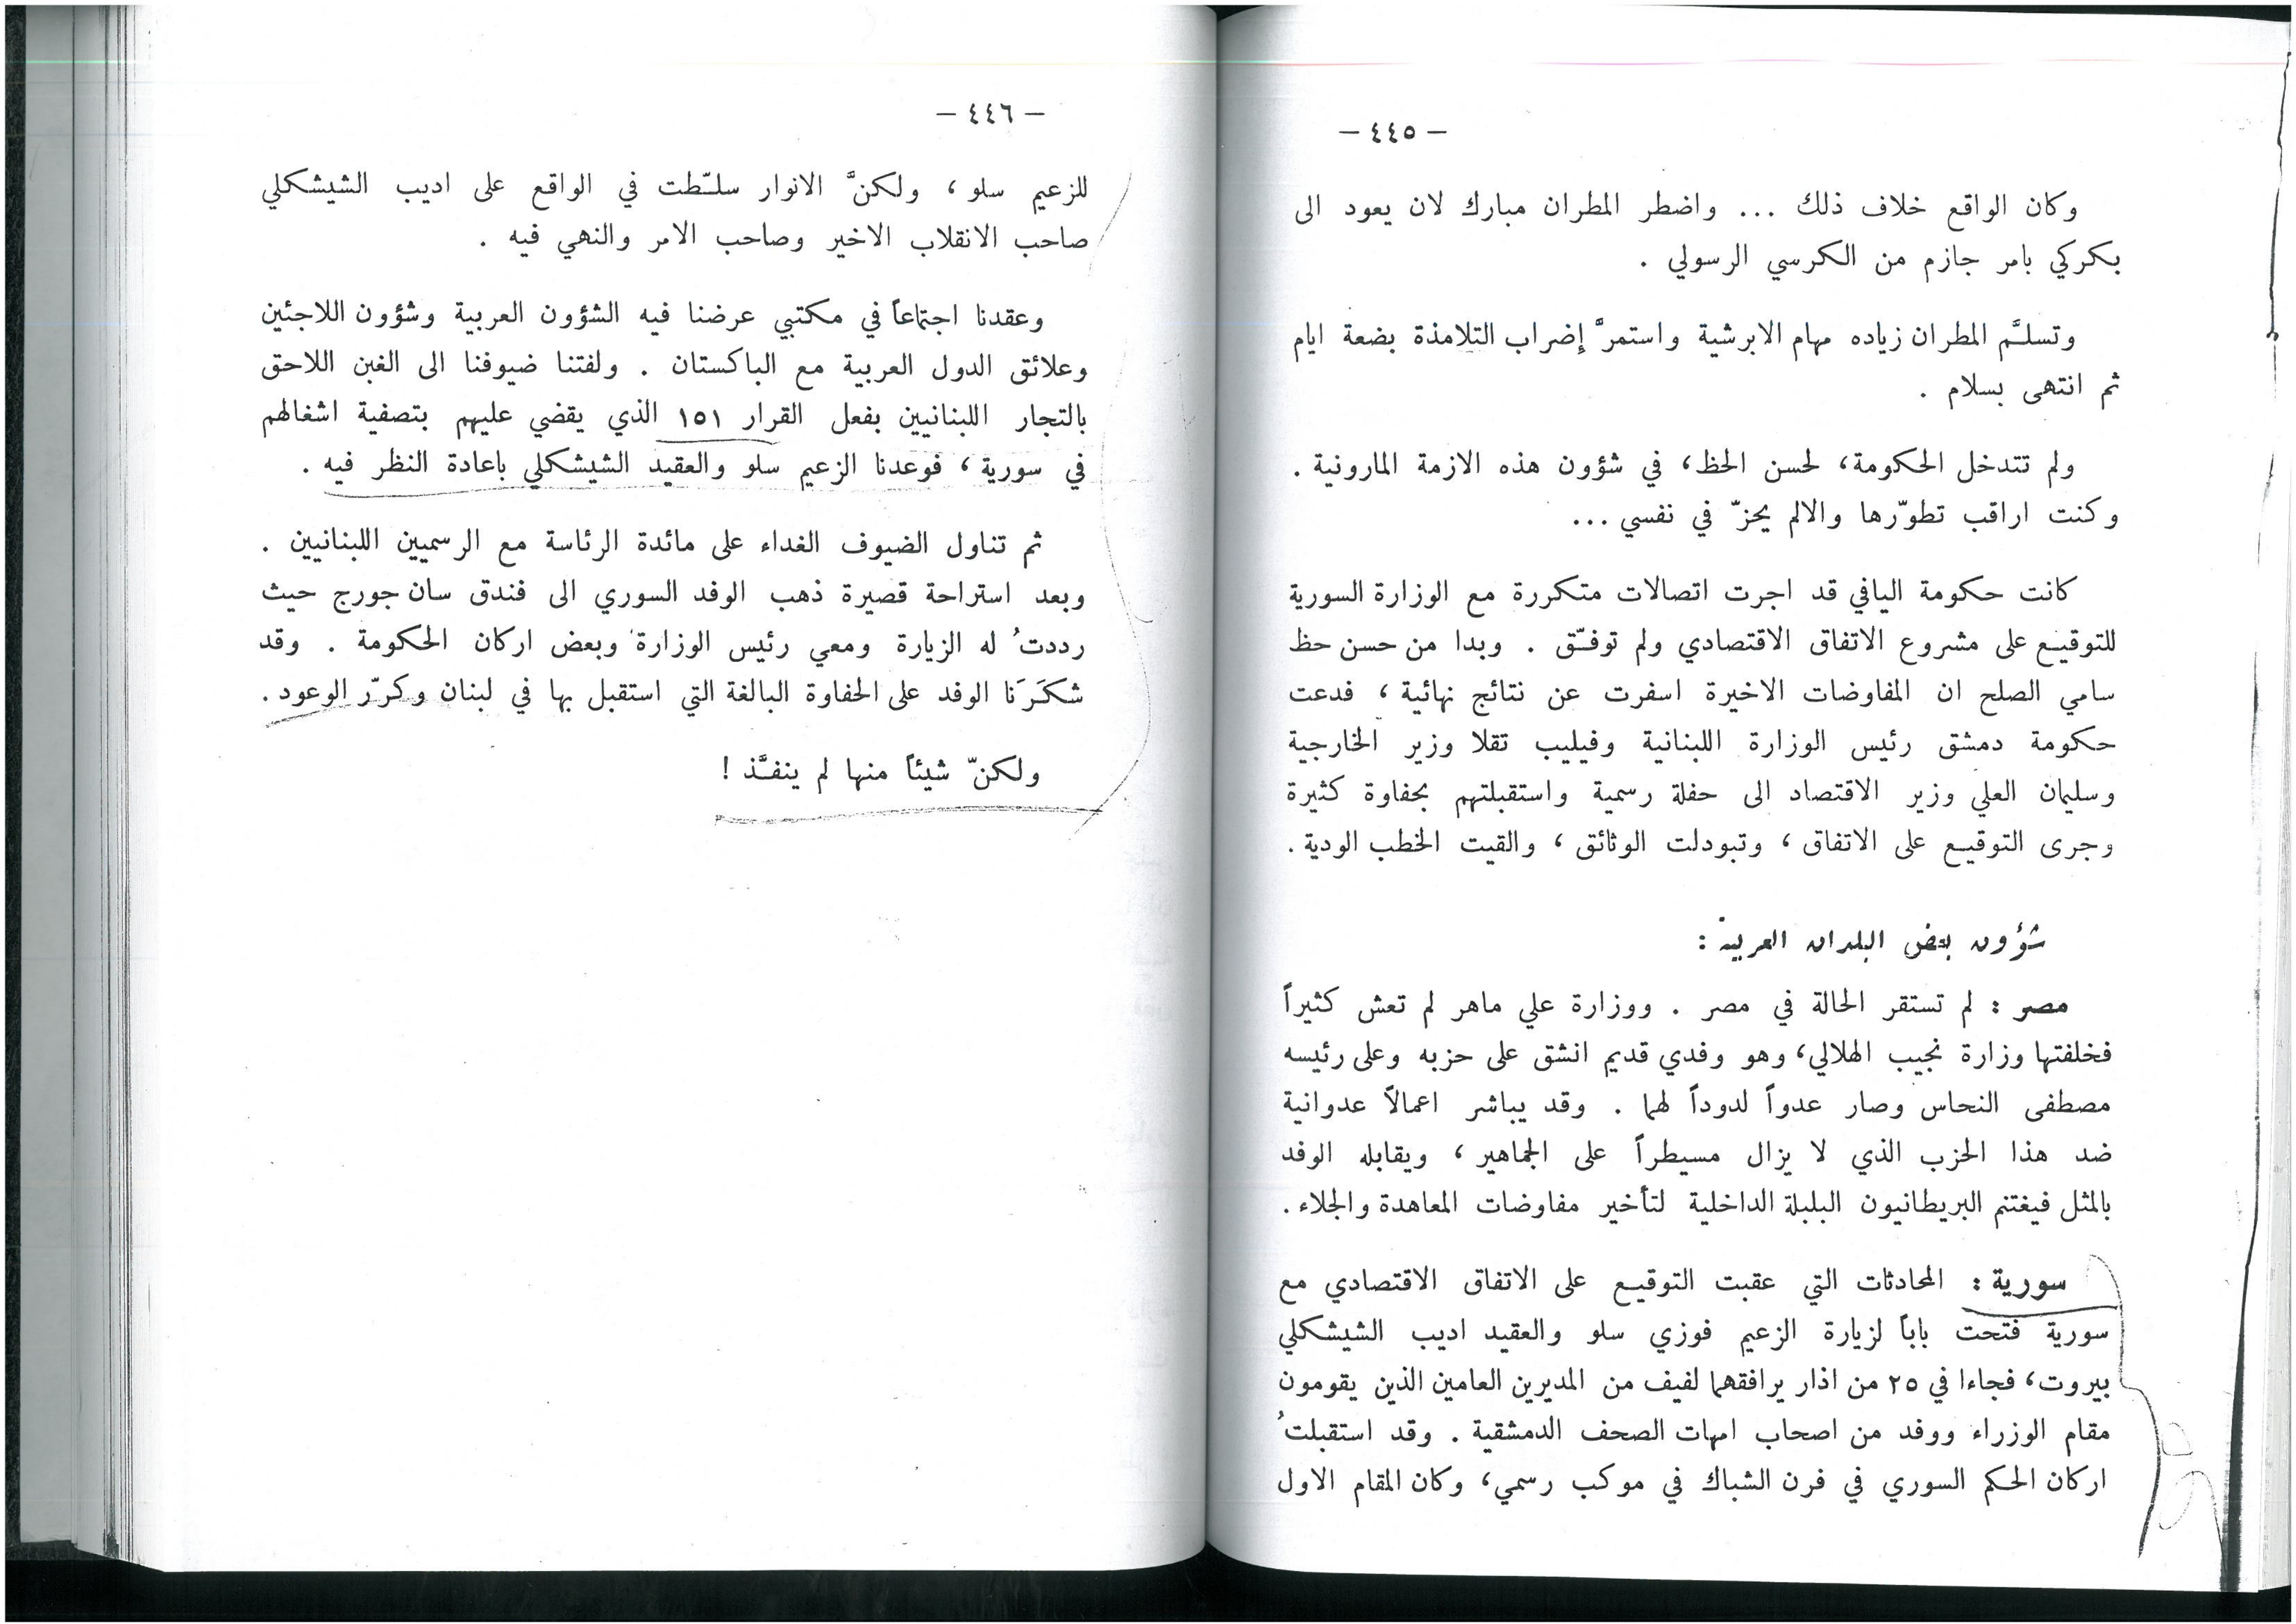 – ٤٤٥ –
وكان الواقع خلاف ذلك ... واضطر المطران مبارك لان يعود الى
بكركي بامر جازم من الكرسي الرسولي .
وتسلَّم المطران زياده مهام الابرشية واستمرَّ إضراب التلامذة بضعة ايام
ثم انتهى بسلام .
ولم تتدخل الحكومة، لحسن الحظ، في شؤون هذه الازمة المارونية .
وكنت اراقب تطوّرها والالم يحزّ في نفسي ...
كانت حكومة اليافي قد اجرت اتصالات متكررة مع الوزارة السورية
للتوقيع على مشروع الاتفاق الاقتصادي ولم توفّق . وبدا من حسن حظ
سامي الصلح ان المفاوضات الاخيرة اسفرت عن نتائج نهائية ، فدعت
حكومة دمشق رئيس الوزارة اللبنانية وفيليب تقلا وزير الخارجية
وسليمان العلي وزير الاقتصاد الى حفلة رسمية واستقبلتهم بحفاوة كثيرة
وجرى التوقيع على الاتفاق ، وتبودلت الوثائق ، والقيت الخطب الودية .
شؤون بعض البلدان العربية :
مصر : لم تستقر الحالة في مصر . ووزارة علي ماهر لم تعش كثيراً
فخلفتها وزارة نجيب الهلالي، وهو وفدي قديم انشق على حزبه وعلى رئيسه
مصطفى النحاس وصار عدواً لدوداً لهما . وقد يباشر اعمالاً عدوانية
ضد هذا الحزب الذي لا يزال مسيطراً على الجماهير ، ويقابله الوفد
بالمثل فيغتنم البريطانيون البلبلة الداخلية لتأخير مفاوضات المعاهدة والجلاء .
سورية : المحادثات التي عقبت التوقيع على الاتفاق الاقتصادي مع
سورية فتحت باباً لزيارة الزعيم فوزي سلو والعقيد اديب الشيشكلي
بيروت، فجاءا في ٢٥ من اذار يرافقهما لفيف من المديرين العامين الذين يقومون
مقام الوزراء ووفد من اصحاب امهات الصحف الدمشقية . وقد استقبلتُ
اركان الحكم السوري في فرن الشباك في موكب رسمي، وكان المقام الاول
– ٤٤٦ –
للزعيم سلو ، ولكنَّ الانوار سلّطت في الواقع على اديب الشيشكلي
صاحب الانقلاب الاخير وصاحب الامر والنهي فيه .
وعقدنا اجتماعاً في مكتبي عرضنا فيه الشؤون العربية وشؤون اللاجئين
وعلائق الدول العربية مع الباكستان . ولفتنا ضيوفنا الى الغبن اللاحق
بالتجار اللبنانيين بفعل القرار ١٥١ الذي يقضي عليهم بتصفية اشغالهم
في سورية ، فوعدنا الزعيم سلو والعقيد الشيشكلي باعادة النظر فيه .
ثم تناول الضيوف الغداء على مائدة الرئاسة مع الرسميين اللبنانيين .
وبعد استراحة قصيرة ذهب الوفد السوري الى فندق سان جورج حيث
رددتُ له الزيارة ومعي رئيس الوزارة وبعض اركان الحكومة . وقد
شكَرَنا الوفد على الحفاوة البالغة التي استقبل بها في لبنان وكرّر الوعود .
ولكنّ شيئاً منها لم ينفَّذ !